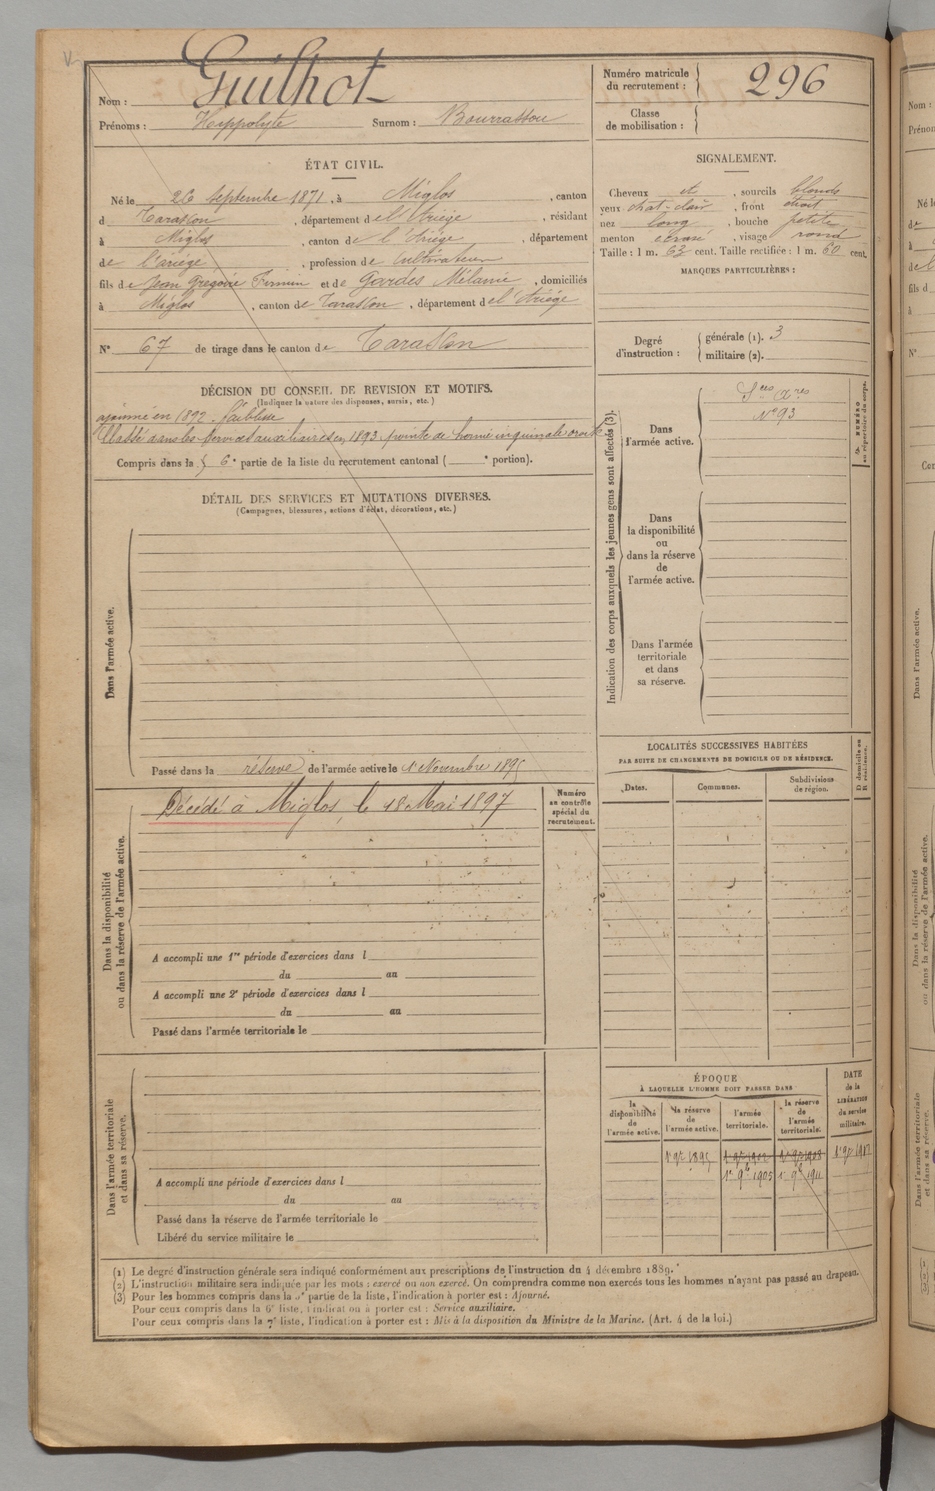 Guilhot
Nom :
Prénoms : Hippolyte Surnom : Bourrassou
Numéro matricule
du recrutement : 296
Classe
de mobilisation :
ÉTAT CIVIL.
Né le 26 Septembre 1871, à Miglos, canton
d Tarascon, département de l'Ariège, résidant
à Miglos, canton de l'Ariège, département
de l'ariège, profession de Cultivateur
fils de Jean Gregoire Firmin et de Gardes Mélanie, domiciliés
à Miglos, canton de Tarascon, département de l'Ariège
N° 67 de tirage dans le canton de Tarascon
SIGNALEMENT.
Cheveux et, sourcils blonds
yeux chat-clair, front étroit
nez long, bouche petite
menton écrasé, visage rond
Taille : 1 m. 63 cent. Taille rectifiée : 1 m. 60 cent.
MARQUES PARTICULIÈRES :
Degré
d'instruction :
générale (1). 3
militaire (2).
DÉCISION DU CONSEIL DE REVISION ET MOTIFS.
(Indiquer la nature des dispenses, sursis, etc.)
ajourné en 1892. faiblesse
Classé dans les services auxiliaires en 1893. pointe de hernie inguinale droite
Compris dans la 6e partie de la liste du recrutement cantonal ( e portion).
DÉTAIL DES SERVICES ET MUTATIONS DIVERSES.
(Campagnes, blessures, actions d'éclat, décorations, etc.)
Dans l'armée active.
Passé dans la réserve de l'armée active le 1 Novembre 1895
Indication des corps auxquels les jeunes gens sont affectés (3).
Dans
l'armée active.
Sces Aires
N° 93
NUMÉRO
au répertoire du corps.
Dans
la disponibilité
ou
dans la réserve
de
l'armée active.
Dans l'armée
territoriale
et dans
sa réserve.
Dans la disponibilité
ou dans la réserve de l'armée active.
Décédé à Miglos, le 18 Mai 1897
Numéro
au contrôle
spécial du
recrutement.
A accompli une 1re période d'exercices dans l
du au
A accompli une 2e période d'exercices dans l
du au
Passé dans l'armée territoriale le
LOCALITÉS SUCCESSIVES HABITÉES
PAR SUITE DE CHANGEMENTS DE DOMICILE OU DE RÉSIDENCE.
D domicile ou
R résidence.
Dates.
Communes.
Subdivisions
de région.
Dans l'armée territoriale
et dans sa réserve.
A accompli une période d'exercices dans l
du au
Passé dans la réserve de l'armée territoriale le
Libéré du service militaire le
ÉPOQUE
À LAQUELLE L'HOMME DOIT PASSER DANS
la
disponibilité
de
l'armée active.
la réserve
de
l'armée active.
l'armée
territoriale.
la réserve
de
l'armée
territoriale.
DATE
de la
LIBÉRATION
du service
militaire.
1er 9bre 1895
1er 9b 1905 1er 9b 1911
(1) Le degré d'instruction générale sera indiqué conformément aux prescriptions de l'instruction du 4 décembre 1889.
(2) L'instruction militaire sera indiquée par les mots : exercé ou non exercé. On comprendra comme non exercés tous les hommes n'ayant pas passé au drapeau.
(3) Pour les hommes compris dans la 5e partie de la liste, l'indication à porter est : Ajourné.
Pour ceux compris dans la 6e liste, l'indication à porter est : Service auxiliaire.
Pour ceux compris dans la 7e liste, l'indication à porter est : Mis à la disposition du Ministre de la Marine. (Art. 4 de la loi.)